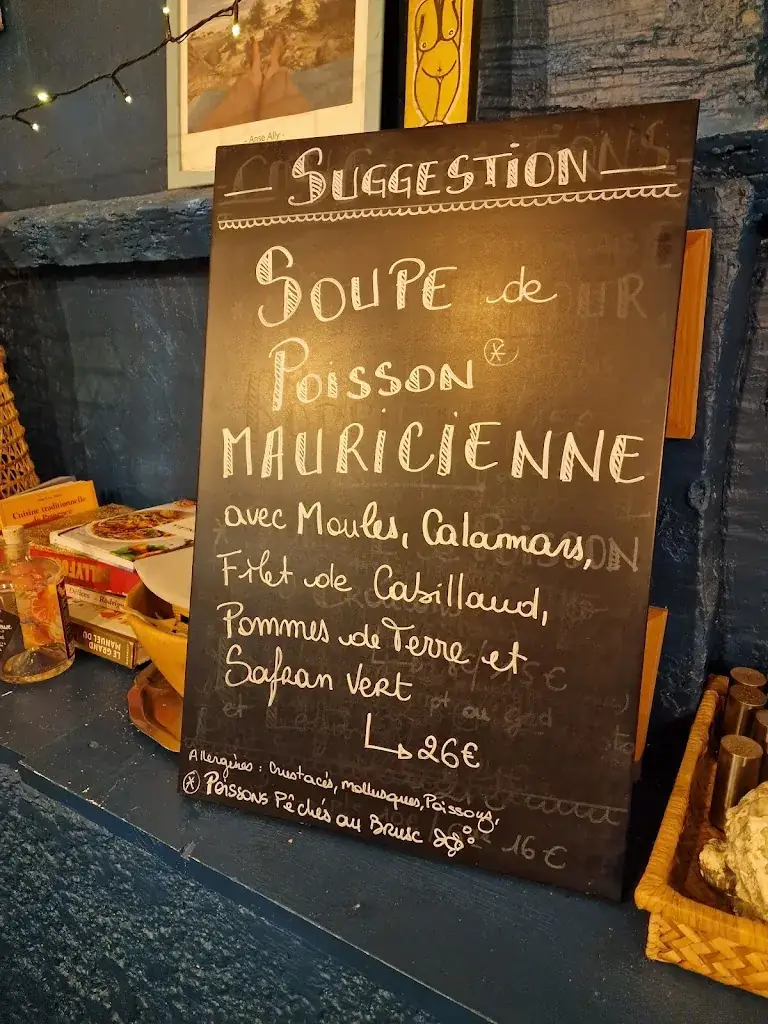 - Anse Ally -
SUGGESTION
SOUPE de
POISSON *
MAURICIENNE
avec Moules, Calamars,
Filet de Cabillaud,
Pommes de Terre et
Safran Vert
26€
Allergènes : Crustacés, mollusques, Poissons,
* Poissons Pêchés au Brusc
16€
Cuisine traditionnelle
LE GRAND
MANUEL DU